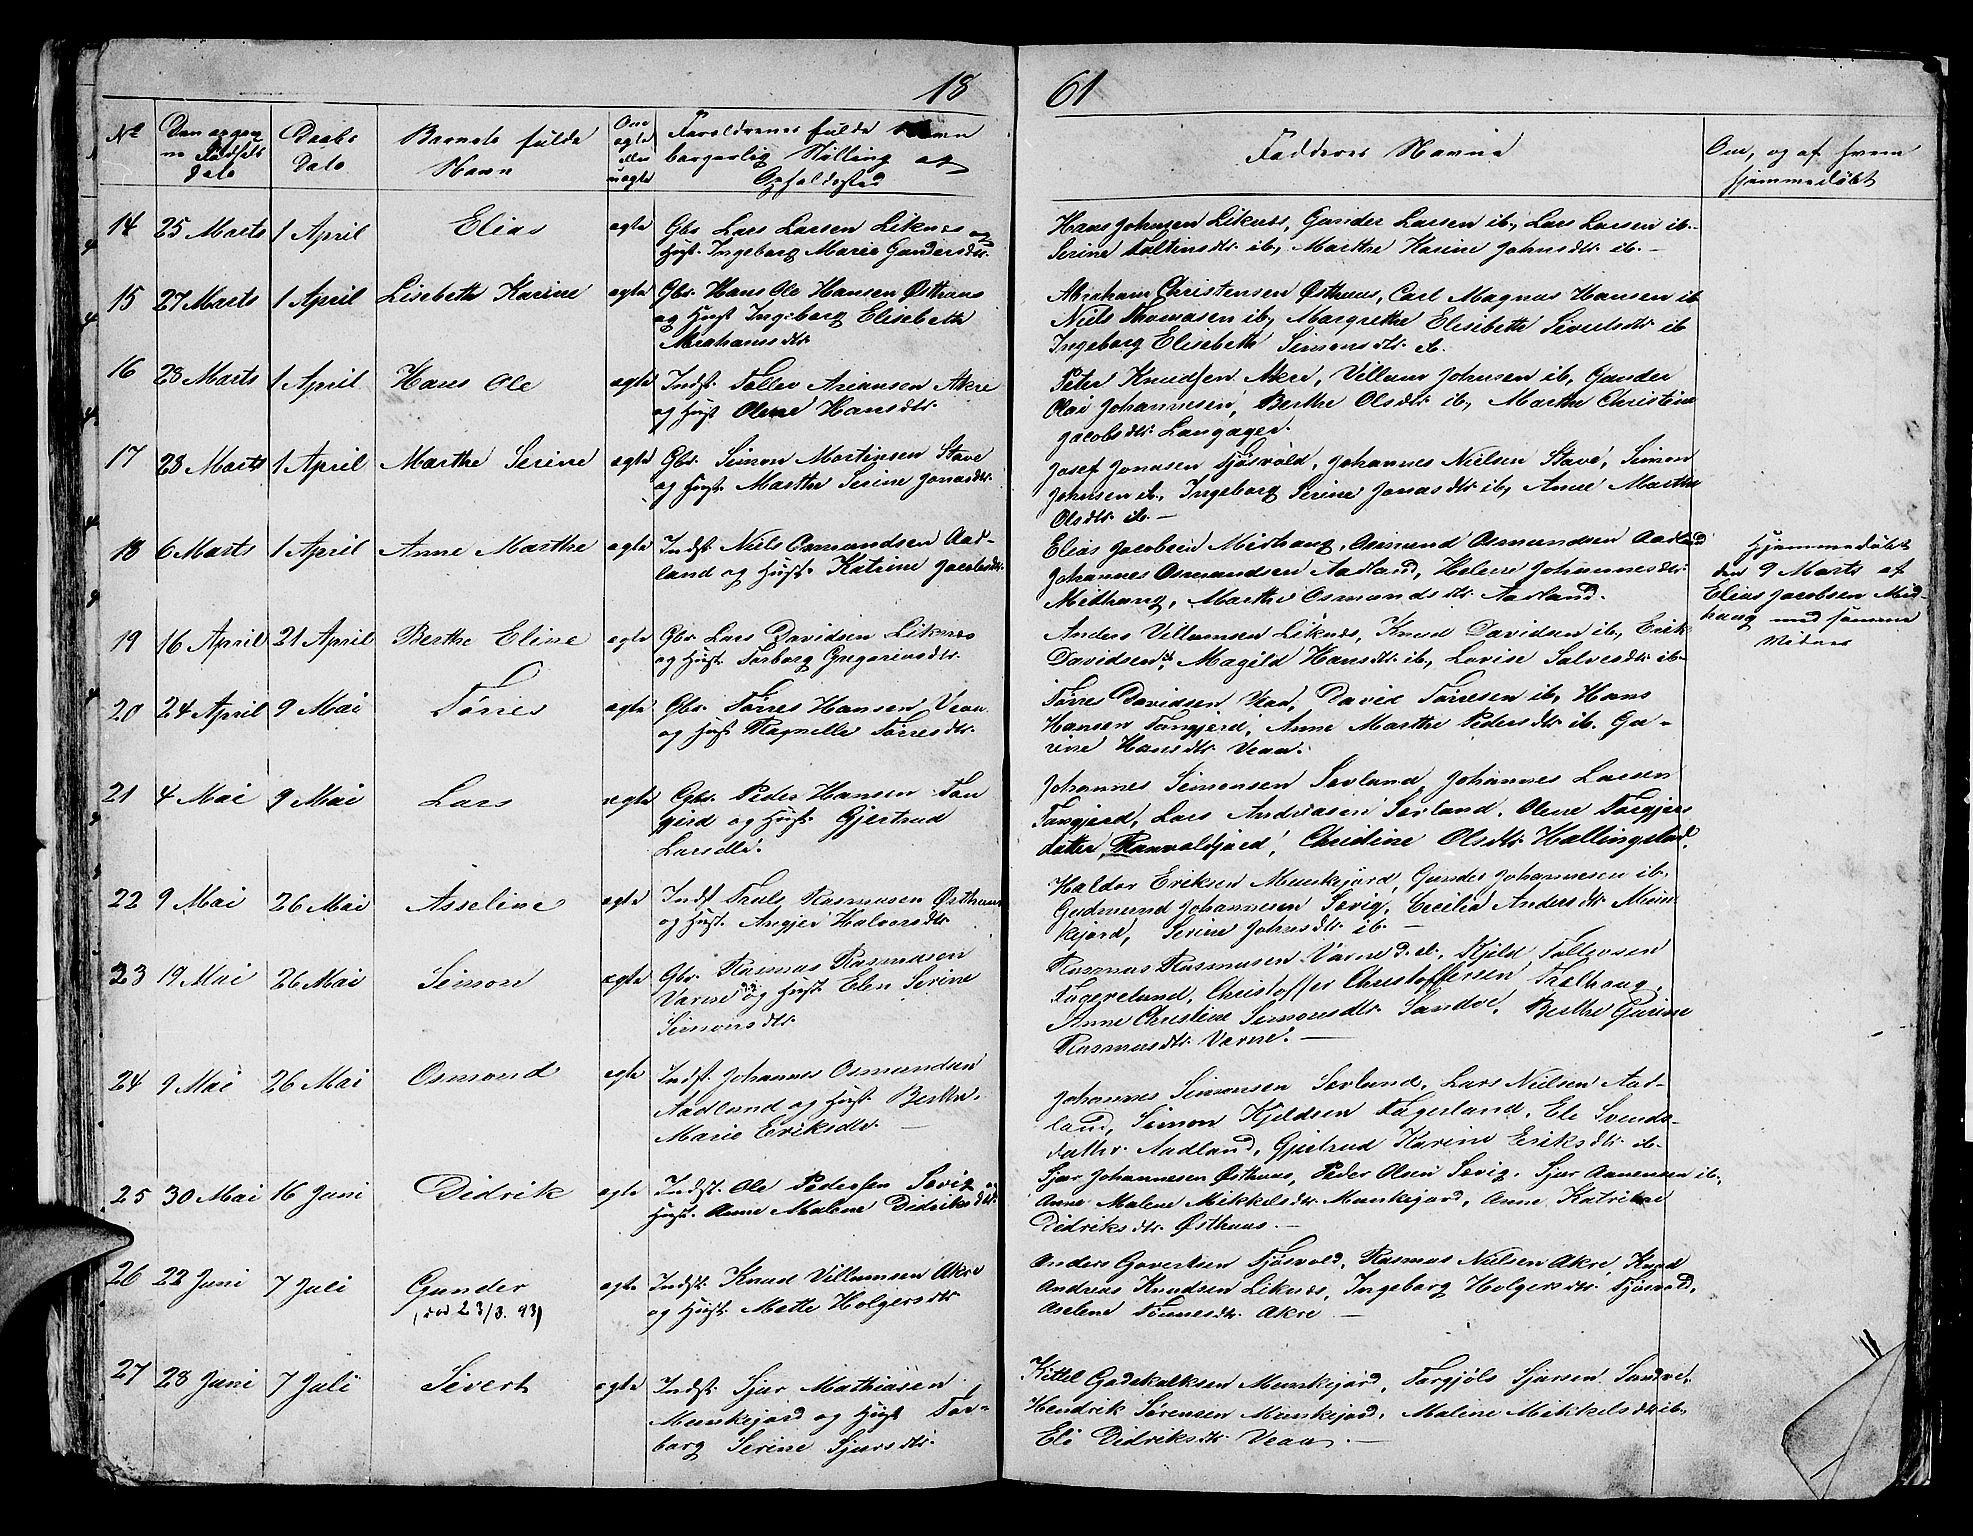 18 61
No Den og gen
ne Fødsels
Dato
Daabs
Dato
Barnets fulde
Navn
Om
ægte
eller
uægte
Forældrenes fulde Navn
borgerlig Stilling og
Opholdssted
Faddernes Navne
Om, og af hvem
hjemmedøbt
14 25 Marts 1 April Elias ægte Gbr Lars Larsen Liknes og
Hust. Ingeborg Marie Gundersdtr.
Hans Johnsen Liknes, Gunder Larsen ib, Lars Larsen ib.
Serine Toltinsdtr ib, Marthe Karine Johnsdtr ib. —
15 27 Marts 1 April Lisebeth Karine ægte Gbr. Hans Ole Hansen Østhuus
og Hust Ingeborg Elisebeth
Abrahamsdtr
Abraham Christensen Østhuus, Carl Magnus Hansen ib
Niels Thomasen ib, Margrethe Elisebeth Sivertsdtr ib
Ingeborg Elisebeth Simonsdtr ib.
16 28 Marts 1 April Hans Ole ægte Indst. Tollev Ariansen Akre
og Hust Olene Hansdtr.
Peter Knudsen Akre, Villum Johnsen ib, Gunder
Olai Johannesen, Berthe Olsdtr ib, Marthe Christine
Jacobsdtr Langager.
17 28 Marts 1 April Marthe Serine ægte Gbr. Simon Mortensen Stave
og Hust. Marthe Serine Jonasdtr.
Josef Jonasen Tjøsvold, Johannes Nielsen Stave, Simon
Johnsen ib, Ingeborg Serine Jonasdtr ib, Anne Marthe
Olsdtr ib. —
18 6 Marts 1 April Anne Marthe ægte Indst Niels Osmundsen Aad-
land og Hust. Katrine Jacobsdtr.
Elias Jacobsen Midhaug, Osmund Osmundsen Aadland
Johannes Osmundsen Aadland, Helene Johannesdtr
Midhaug, Marthe Osmundsdtr Aadland.
Hjemmedøbt
den 9 Marts af
Elias Jacobsen Mid
haug med samme
Vidner
19 16 April 21 April Berthe Eline ægte Gbr Lars Davidsen Liknes
og Hust. Torborg Gregoriusdtr.
Anders Villumsen Liknes, Knud Davidsen ib, Erik
Davidsen ib, Magild Hansdtr ib, Lovise Salvesdtr ib
20 24 April 9 Mai Tørres ægte Gbr. Tørres Hansen Veaa
og Hust Ragnelle Tørresdtr.
Tørres Davidsen Veaa, David Tørresen ib, Hans
Hansen Tangjerd, Anne Marthe Pedersdtr ib. Gu-
rine Hansdtr Veaa.
21 4 Mai 9 Mai Lars ægte Gbr. Peder Hansen Tan
gjerd og Hust. Gjertrud
Larsdtr.
Johannes Simonsen Sevland Johannes Larsen
Tangjerd, Lars Andreasen Sevland, Olene Torgjers
datter Ranvaldjord, Christine Olsdtr Hallingstad.
22 9 Mai 26 Mai Asseline ægte Indst Truls Rasmusen Østhuus
og Hust. Angjer Halvorsdtr
Haldor Eriksen Munkejord, Gunder Johannesen ib,
Gudmund Johannesen Sævig, Cecilia Andersdtr Mun
kejord, Serine Johnsdtr ib. —
23 19 Mai 26 Mai Simon ægte Gbr. Rasmus Rasmusen
Varne og Hust Elen Serine
Simonsdtr
Rasmus Rasmusen Varne d. el. Kjeld Tollevsen
Fagereland, Christoffer Christoffersen Trælhaug,
Anne Christine Simonsdtr Sandve, Berthe Gurine
Rasmusdtr Varne. —
24 9 Mai 26 Mai Osmond ægte Indst. Johannes Osmundsen
Aadland og Hust. Berthe
Marie Eriksdtr. —
Johannes Simonsen Sevland, Lars Nielsen Aad-
land, Simon Kjeldsen Fagerland, Eli Svends-
datter Aadland, Gjertrud Karine Eriksdtr ib.
25 30 Mai 16 Juni Didrik ægte Indst. Ole Pedersen Sævig og
Hust. Anne Malene Didriksdtr.
Sjur Johannesen Østhuus, Peder Olsen Sævig, Sjur Aanensen ib,
Anne Malene Mikkelsdtr Munkejord, Anne Katrine
Didriksdtr Østhuus. —
26 22 Juni 7 Juli Gunder
23/8. 93)
ægte Indst. Knud Villumsen Akre
og Hust. Mette Holgersdtr
Anders Govertsen Tjøsvold, Rasmus Nielsen Akre, Knud
Andreas Knudsen Liknes, Ingeborg Holgersdtr Tjøsvold,
Aselene Tønnesdtr Akre —
27 28 Juni 7 Juli Sivert ægte Indst. Sjur Mathiasen
Munkejord og Hust Tor-
borg Serine Sjursdtr.
Kittel Godskalksen Munkejord, Torgjøls Sjursen Sandve,
Hendrik Sørensen Munkejord, Malene Mikkelsdtr ib,
Eli Didriksdtr Veaa. —